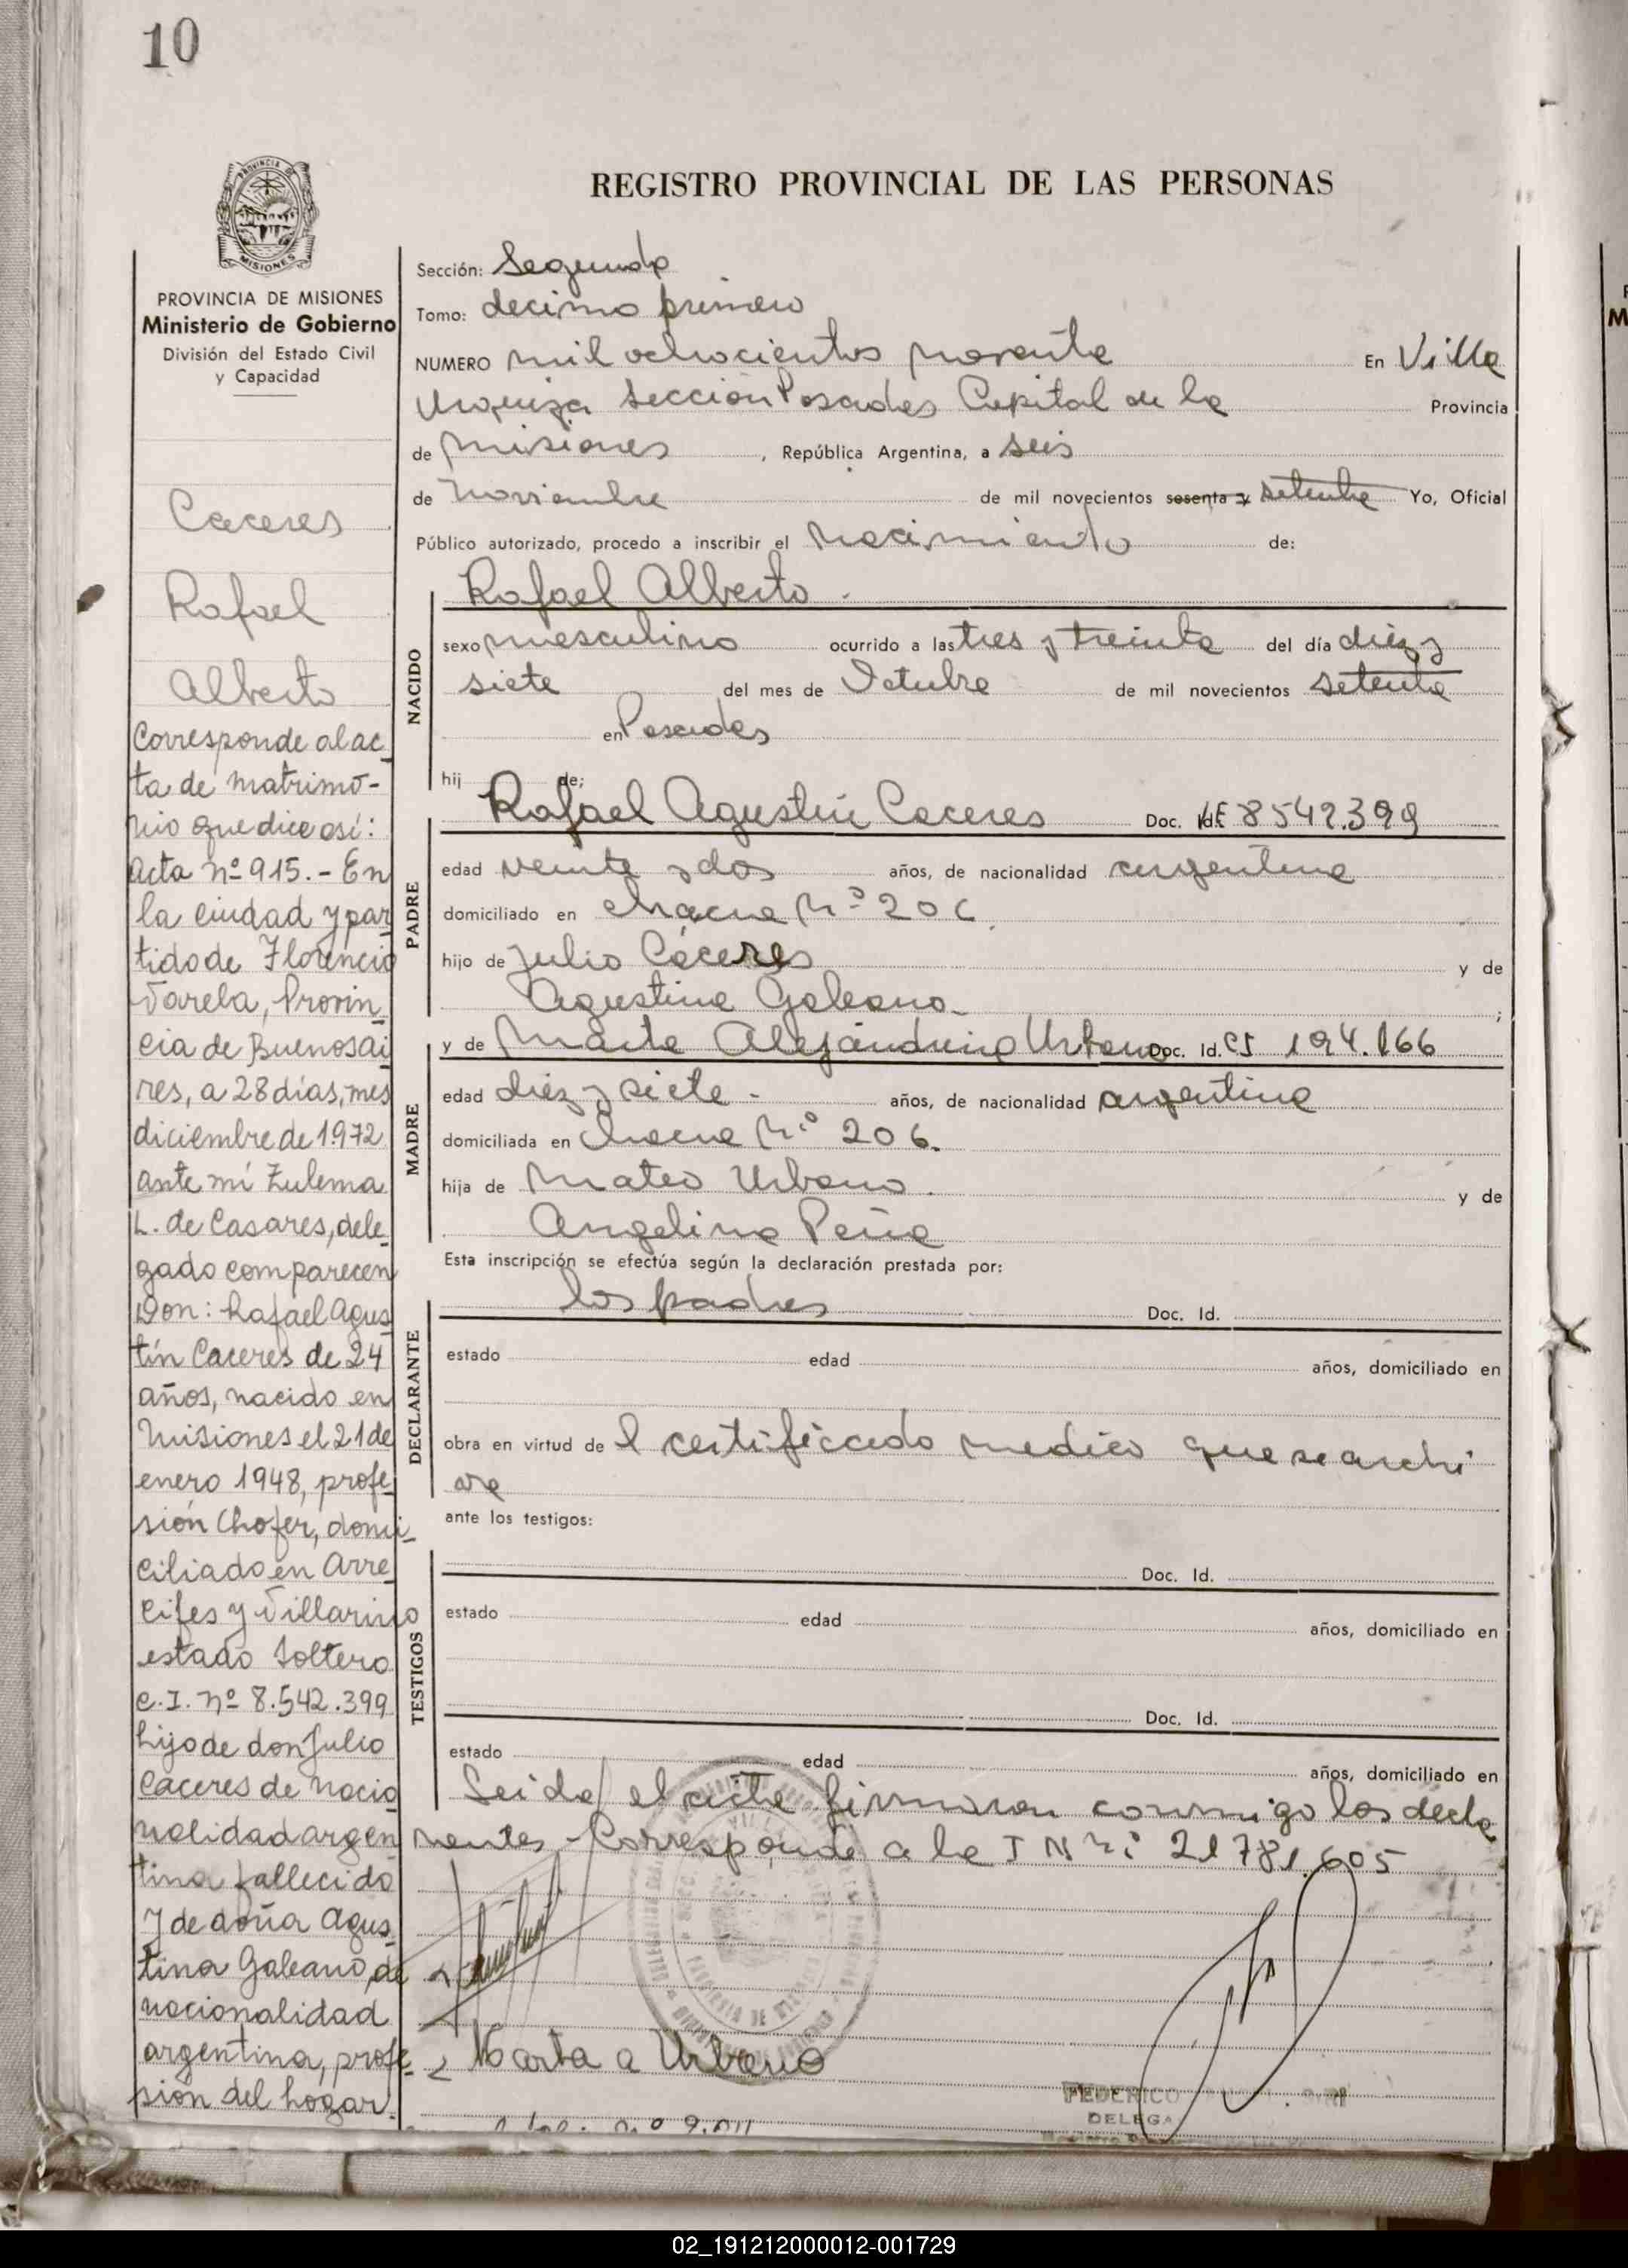 10
REGISTRO PROVINCIAL DE LAS PERSONAS
PROVINCIA DE MISIONES
Ministerio de Gobierno
División del Estado Civil
y Capacidad
Caceres
Rafael
Alberto
Corresponde al ac
ta de matrimo-
nio que dice así:
acta nº 915.- En
la ciudad y par
tido de Florencio
Varela, Provin
cia de Buenos ai
res, a 28 días, mes
diciembre de 1972
ante mí Zulema
L. de Casares, dele
gado comparecen
Don: Rafael Agus
tín Caceres de 24
años, nacido en
Misiones el 21 de
enero 1948, profe
sión Chofer, domi-
ciliado en Arre
cifes y Villarino
estado Soltero
C.I. nº 8.542.399
hijo de don Julio
Caceres de nacio
nalidad argen
tina fallecido
y de doña Agus
tina Galeano, de
nacionalidad
argentina, profe-
sión del hogar.
Sección: Segunda
Tomo: decimo primero
NUMERO mil ochocientos noventa En Villa
Urquiza Sección Posadas Capital de la Provincia
de Misiones , República Argentina, a seis
de Noviembre de mil novecientos sesenta y setenta Yo, Oficial
Público autorizado, procedo a inscribir el nacimiento de:
NACIDO
Rafael Alberto
sexo masculino ocurrido a las tres y treinta del día diez y
siete del mes de Octubre de mil novecientos setenta
en Posadas
hij de:
PADRE
Rafael Agustin Caceres Doc. Id. LE 8542.399
edad veinte y dos años, de nacionalidad argentina
domiciliado en chacra Nº 206
hijo de Julio Cáceres y de
Agustina Galeano ;
MADRE
y de Marta Alejandrina Urbano Doc. Id. CI 194.166
edad diez y siete - años, de nacionalidad argentina
domiciliada en Chacra Nº 206.
hija de Mateo Urbano y de
Angelina Peña
Esta inscripción se efectúa según la declaración prestada por:
DECLARANTE
los padres Doc. Id.
estado edad años, domiciliado en
obra en virtud de l certificado medico que se archi
va
ante los testigos:
TESTIGOS
Doc. Id.
estado edad años, domiciliado en
Doc. Id.
estado edad años, domiciliado en
Leida el acta firmaron conmigo los decla
rantes - Corresponde a la I Nº 21781.605
Marta a Urbano
FEDERICO
DELEGA
02_191212000012-001729